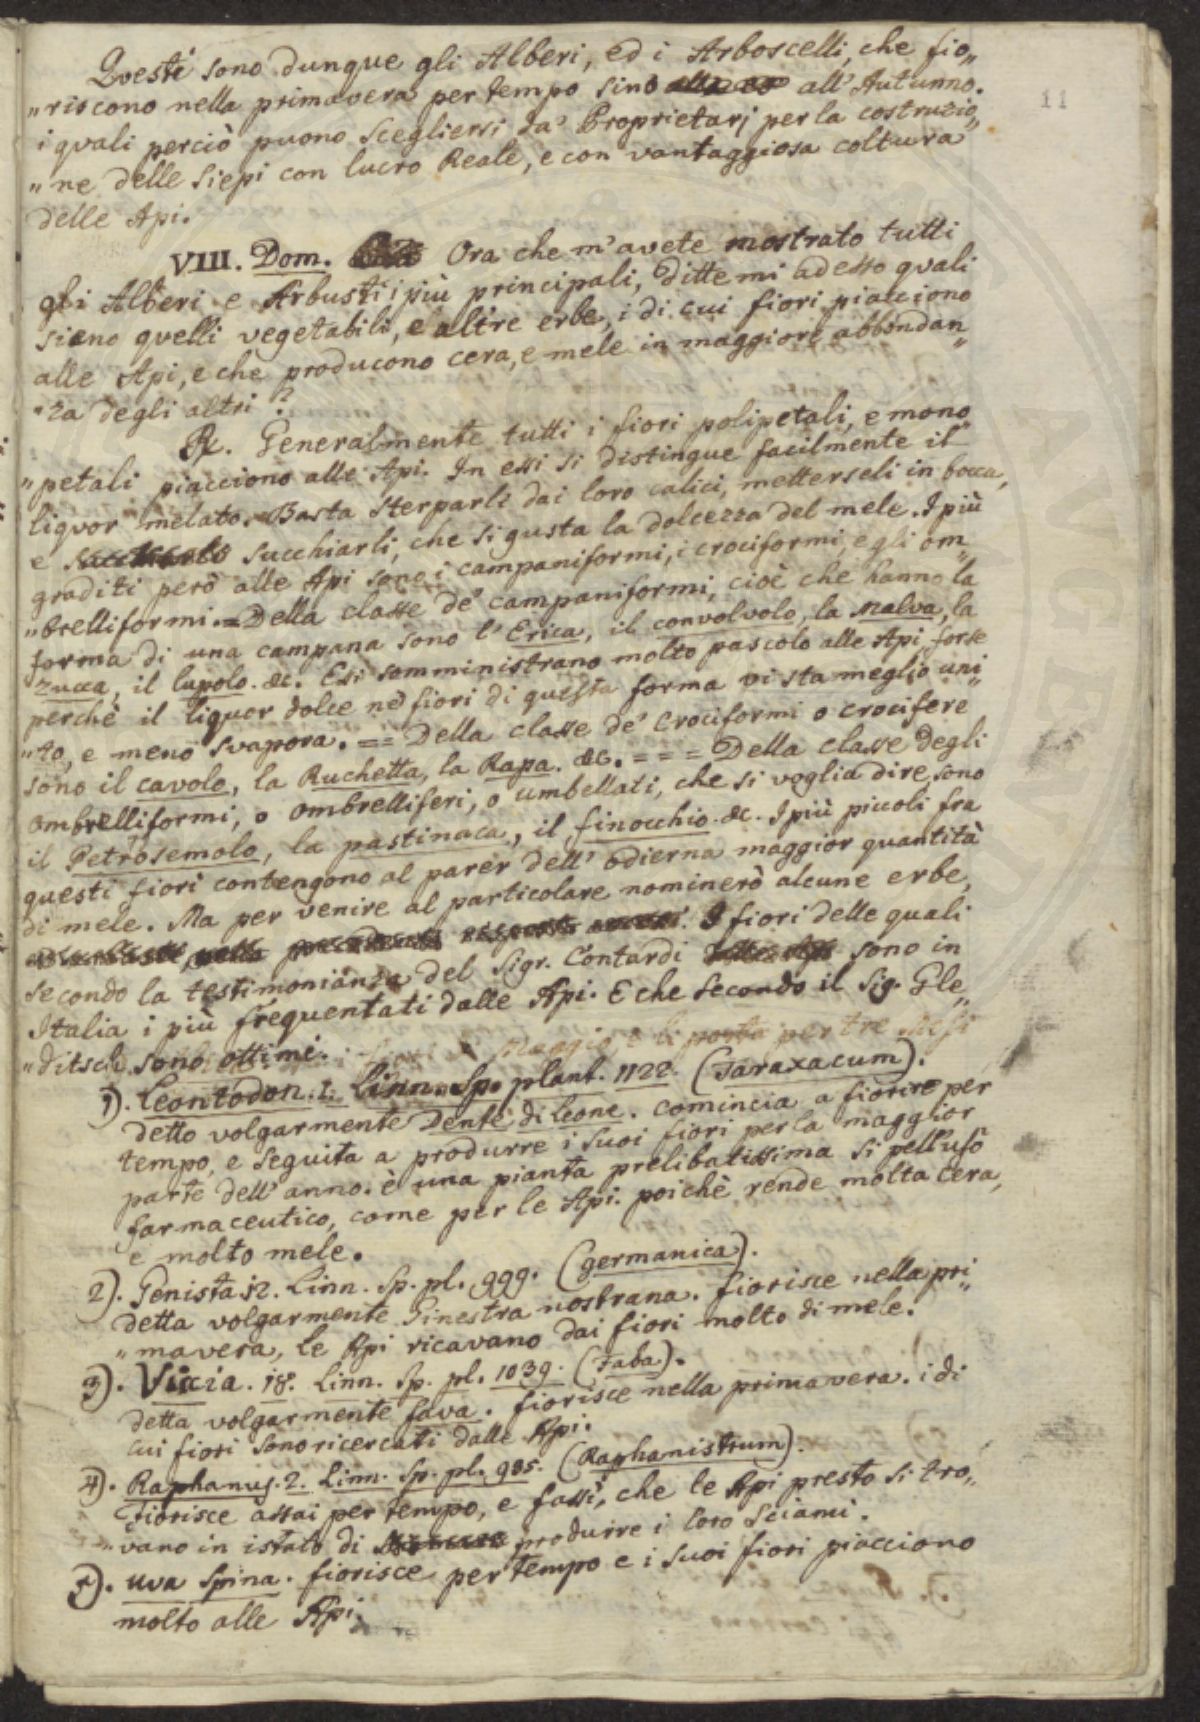 Questi sono dunque gli Alberi, ed i Arboscelli, che fio„
„riscono nella primavera per tempo sino all' Autunno.
11
i quali perciò puono scegliersi da' Proprietarj per la costruzio„
„ne delle siepi con lucro Reale, e con vantaggiosa coltura
delle Api.
VIII. Dom. Ora che m'avete mostrato tutti
gli Alberi e Arbusti i più principali, dittemi adesso quali
siano quelli vegetabili, e altre erbe, i di cui fiori piacciono
alle Api, e che producono cera, e mele in maggiore abbondan„
„za degli altri?
R. Generalmente tutti i fiori polipetali, e mono„
„petali piacciono alle Api. In essi si distingue facilmente il
liquor melato. Basta sterparli dai loro calici, metterseli in bocca,
e succhiarli, che si gusta la dolcezza del mele. I più
graditi però alle Api sono i campaniformi, i crociformi, e gli om„
„brelliformi. = Della classe de' campaniformi, cioè che hanno la
forma di una campana sono l'Erica, il convolvolo, la malva, la
zucca, il lupolo. &c. Esi somministrano molto pascolo alle Api, forse
perchè il liquor dolce ne' fiori di questa forma vi sta meglio uni„
„to, e meno svapora. == Della classe de' Crociformi o crocifere
sono il cavolo, la Ruchetta, la Rapa. &c. = = = Della classe degli
ombrelliformi, o ombrelliferi, o umbellati, che si voglia dire, sono
il Petrosemolo, la pastinaca, il finocchio. &c. I più piccoli fra
questi fiori contengono al parer dell' odierna maggior quantità
di mele. Ma per venire al particolare nominerò alcune erbe,
I fiori delle quali
secondo la testimonianza del Sigr. Contardi sono in
Italia i più frequentati dalle Api. E che secondo il Sig. Gle„
„ditsch sono ottimi.
Maggio e li porta per tre Mesi
1). Leontodon. 1. Linn. Sp. plant. 1122. (Taraxacum).
detto volgarmente Dente di leone. comincia a fiorire per
tempo, e seguita a produrre i suoi fiori per la maggior
parte dell' anno. è una pianta prelibatissima si pell'uso
farmaceutico, come per le Api. poichè rende molta cera,
e molto mele.
2). Genista 12. Linn. Sp. pl. 999. (germanica).
detta volgarmente Ginestra nostrana. fiorisce nella pri„
„mavera, le Api ricavano dai fiori molto di mele.
3). Viccia. 18. Linn. Sp. pl. 1039. (Faba).
detta volgarmente fava. fiorisce nella primavera. i di
cui fiori sono ricercati dalle Api.
4). Raphanus. 2. Linn. Sp. pl. 935. (Raphanistrum).
fiorisce assai per tempo, e fassi, che le Api presto si tro„
„vano in istato di produrre i loro sciami.
5). uva spina. fiorisce per tempo e i suoi fiori piacciono
molto alle Api.